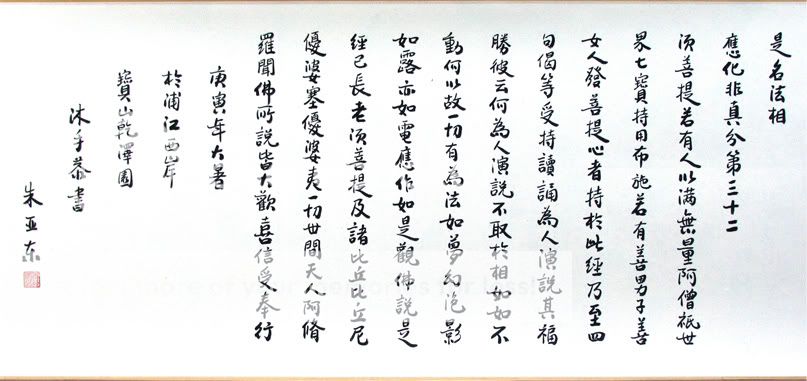 是名法相
應化非真分第三十二
須菩提若有人以满無量阿僧祇世
界七寶持用布施若有善男子善
女人發菩提心者持於此經乃至四
句偈等受持讀誦為人演說其福
勝彼云何為人演說不取於相如如不
動何以故一切有為法如夢幻泡影
如露亦如電應作如是觀佛說是
經已長老須菩提及諸比丘比丘尼
優婆塞優婆夷一切世間天人阿脩
羅聞佛所說皆大歡喜信受奉行
庚寅年大暑
於浦江西岸
寶山乾澤園
沐手恭書
朱亚东
more of your memories for less!